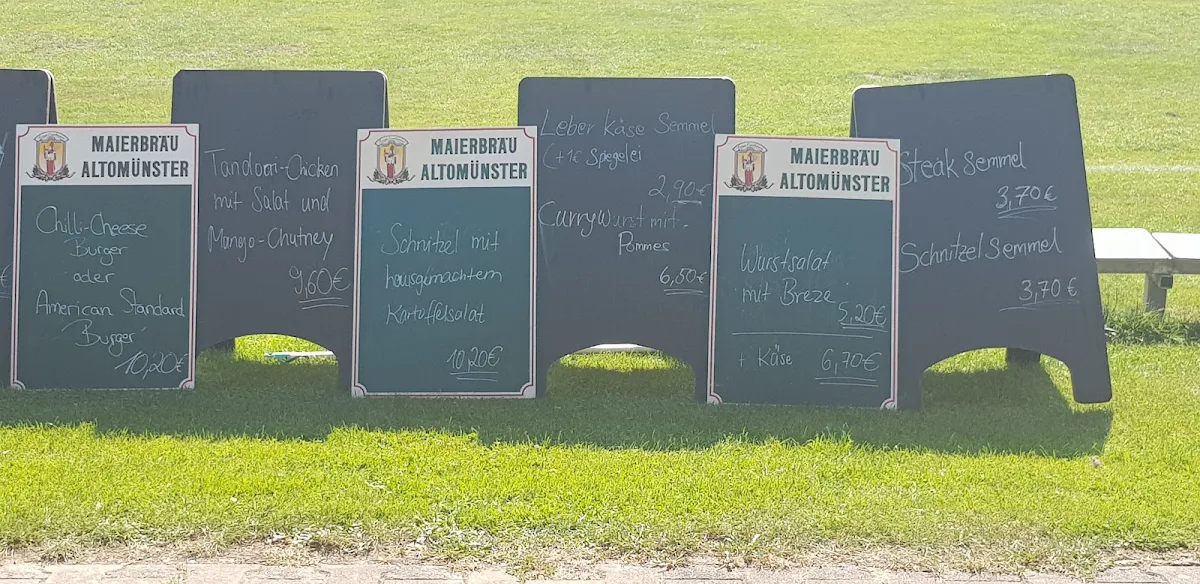 MAIERBRÄU
ALTOMÜNSTER
Chilli-Cheese
Burger
oder
American Standard
Burger
10,20€
Tandorri-Chicken
mit Salat und
Mango-Chutney
9,60€
MAIERBRÄU
ALTOMÜNSTER
Schnitzel mit
hausgemachtem
Kartoffelsalat
10,20€
Leber Käse Semmel
(+1€ Spiegelei
2,90€
Currywurst mit
Pommes
6,50€
MAIERBRÄU
ALTOMÜNSTER
Wurstsalat
mit Breze
5,20€
+ Käse 6,70€
Steak Semmel
3,70€
Schnitzel Semmel
3,70€